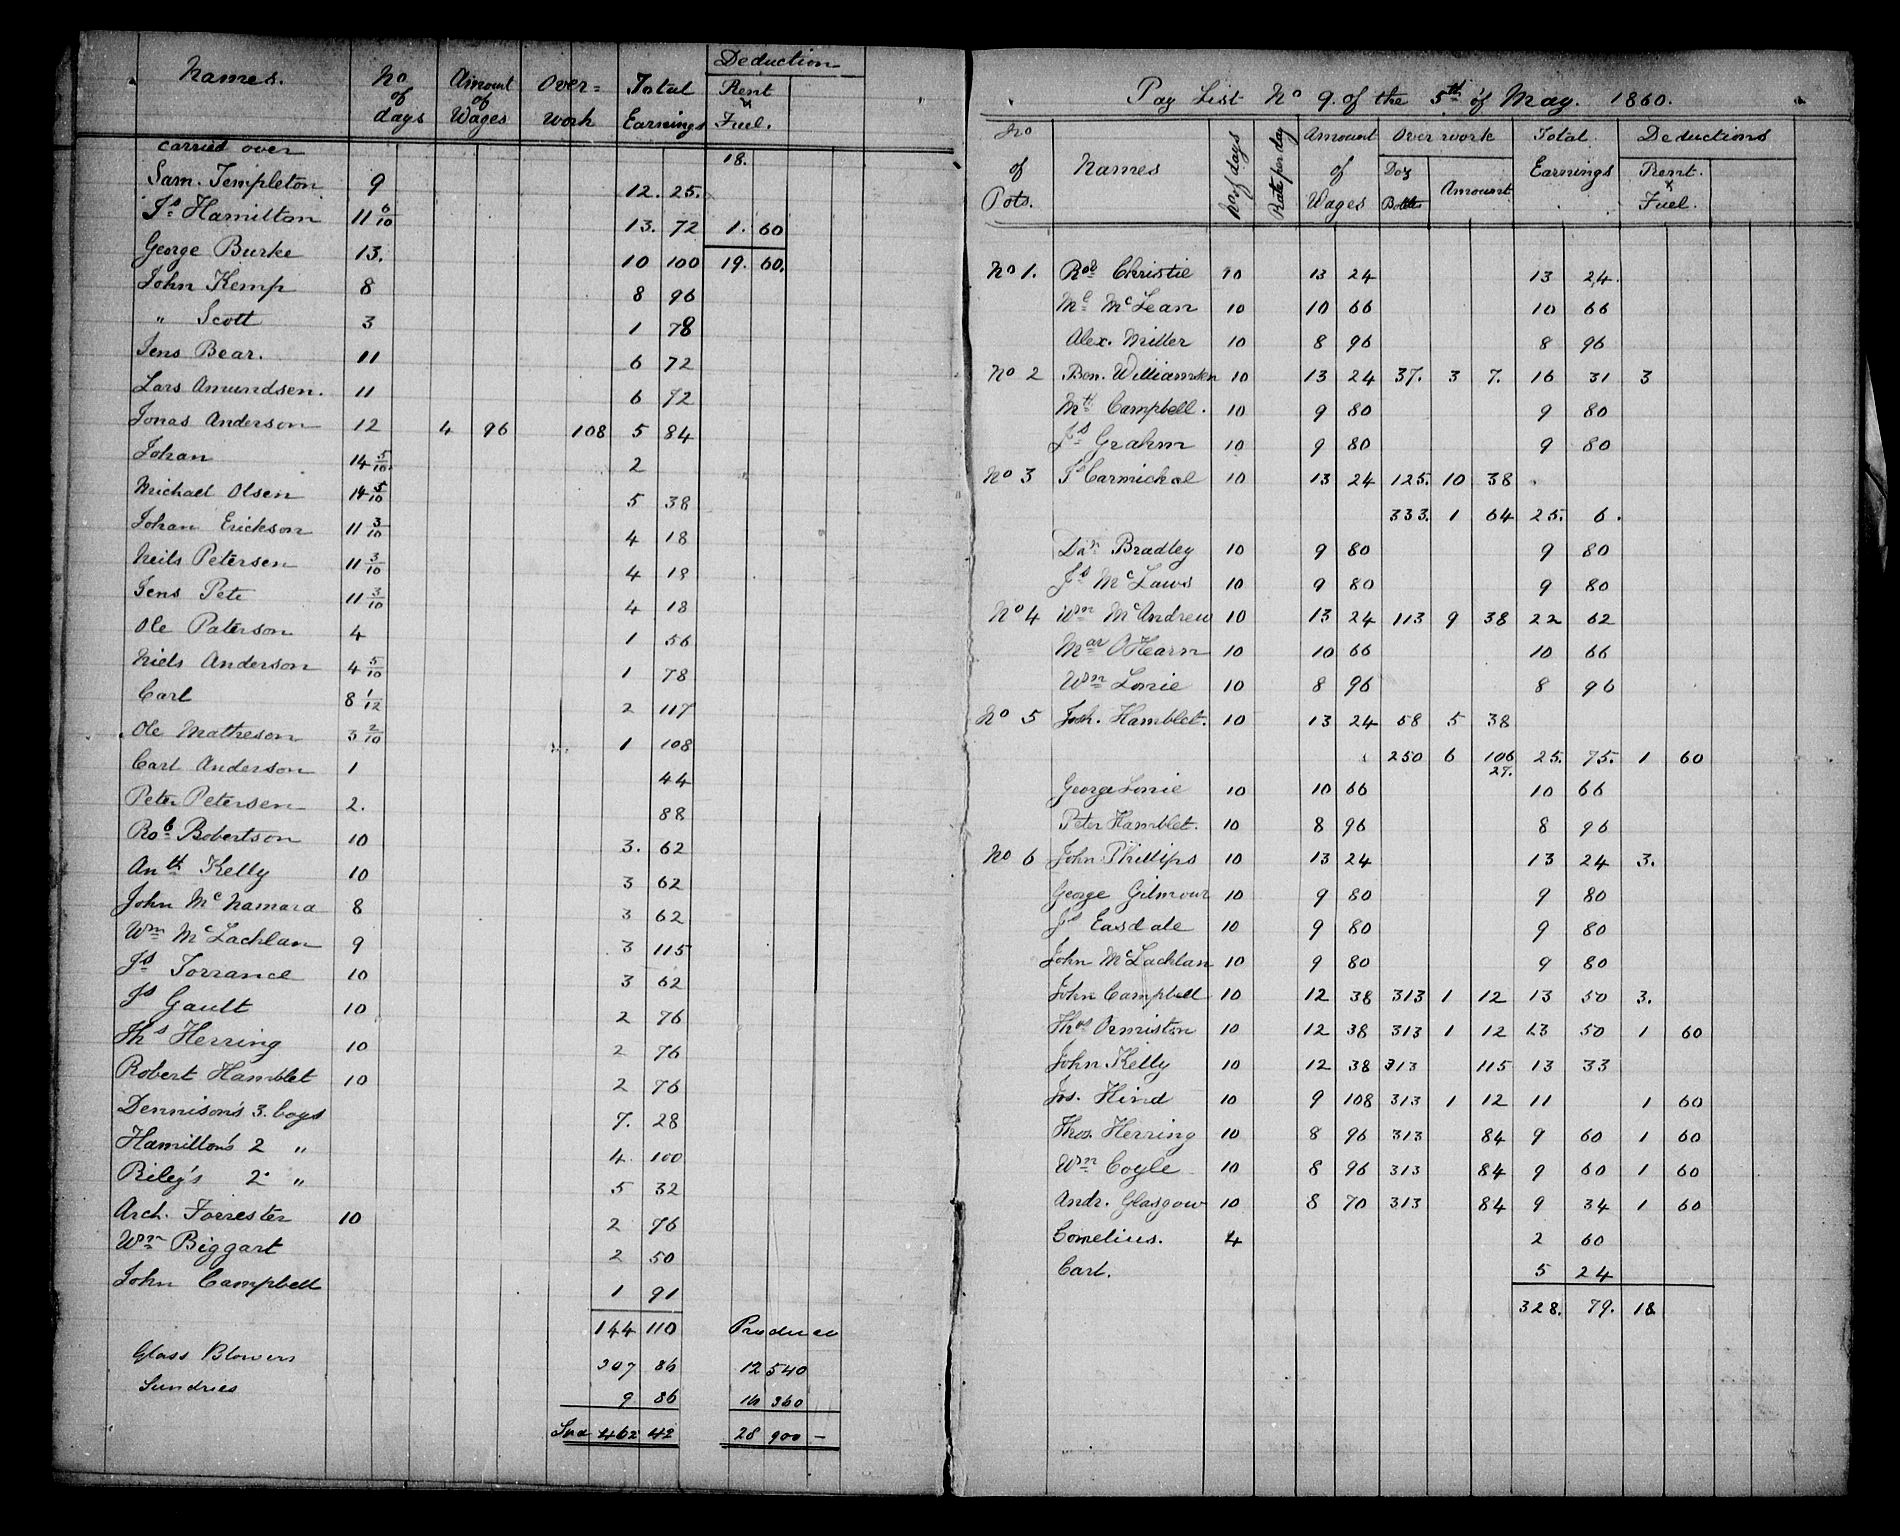 Names. No of days Amount of Wages Over= work Total Earnings Deduction Rent & Fuel.
carried over 18.
Sam. Templeton 9 12. 25.
Js Hamilton 11 6/10 13. 72 1. 60
George Burke 13. 10 100 19. 60.
John Kemp 8 8 96
" Scott 3 1 78
Jens Bear. 11 6 72
Lars Amundsen. 11 6 72
Jonas Anderson 12 4 96 108 5 84
Johan 14 5/10. 2
Michael Olsen 14 5/10 5 38
Johan Erickson 11 3/10 4 18
Neils Petersen 11 3/10 4 18
Jens Pete 11 3/10 4 18
Ole Paterson 4 1 56
Niels Anderson 4 5/10 1 78
Carl 8 1/12 2 117
Ole Matheson 3 2/10 1 108
Carl Anderson 1 44
Peter Petersen 2. 88
Rob Robertson 10 3. 62
Anth Kelly 10 3 62
John McNamara 8 3 62
Wm McLachlan 9 3 115
Js Torrance 10 3 62
Js Gault 10 2 76
Ths Herring 10 2 76
Robert Hamblet 10 2 76
Dennison's 3. boys 7. 28
Hamilton's 2 " 4 100
Riley's 2 " 5 32
Arch. Forrester 10 2 76
Wm Biggart 2 50
John Campbell 1 91
144 110 Produce
Glass Blowers 307 86 12 540
Sundries 9 86 16 360
462 42 28 900 –
Pay List No 9. of the 5th of May. 1860.
No of Pots. Names No of days Rate per day Amount of Wages Over work Doz Bottles Amount Total Earnings Deductions Rent & Fuel.
No 1. Rob Christie 10 13 24 13 24.
Mc McLean 10 10 66 10 66
Alex. Miller 10 8 96 8 96
No 2 Ben. Williamson 10 13 24 37. 3 7. 16 31 3
Mt Campbell. 10 9 80 9 80
Js Grahm 10 9 80 9 80
No 3 Js Carmichal 10 13 24 125. 10 38
333. 1 64 25. 6.
Dan Bradley 10 9 80 9 80
Js McLaws 10 9 80 9 80
No 4 Wm McAndrew 10 13 24 113 9 38 22 62
Mar OHearn 10 10 66 10 66
Wm Lonie 10 8 96 8 96
No 5 Josh. Hamblet. 10 13 24 68 5 38
250 6 106 25. 75. 1 60
27.
George Lonie 10 10 66 10 66
Peter Hamblet. 10 8 96 8 96
No 6 John Phillips 10 13 24 13 24 3.
George Gilmour 10 9 80 9 80
Js Easdale 10 9 80 9 80
John McLachlan 10 9 80 9 80
John Campbell 10 12 38 313 1 12 13 50 3.
Thos Ormiston 10 12 38 313 1 12 13 50 1 60
John Kelly 10 12 38 313 115 13 33
Jos. Hind 10 9 108 313 1 12 11 1 60
Thos. Herring 10 8 96 313 84 9 60 1 60
Wm Coyle 10 8 96 313 84 9 60 1 60
Andr. Glasgow 10 8 70 313 84 9 34 1 60
Cornelius. 4 2 60
Carl. 5 24
328. 79. 18